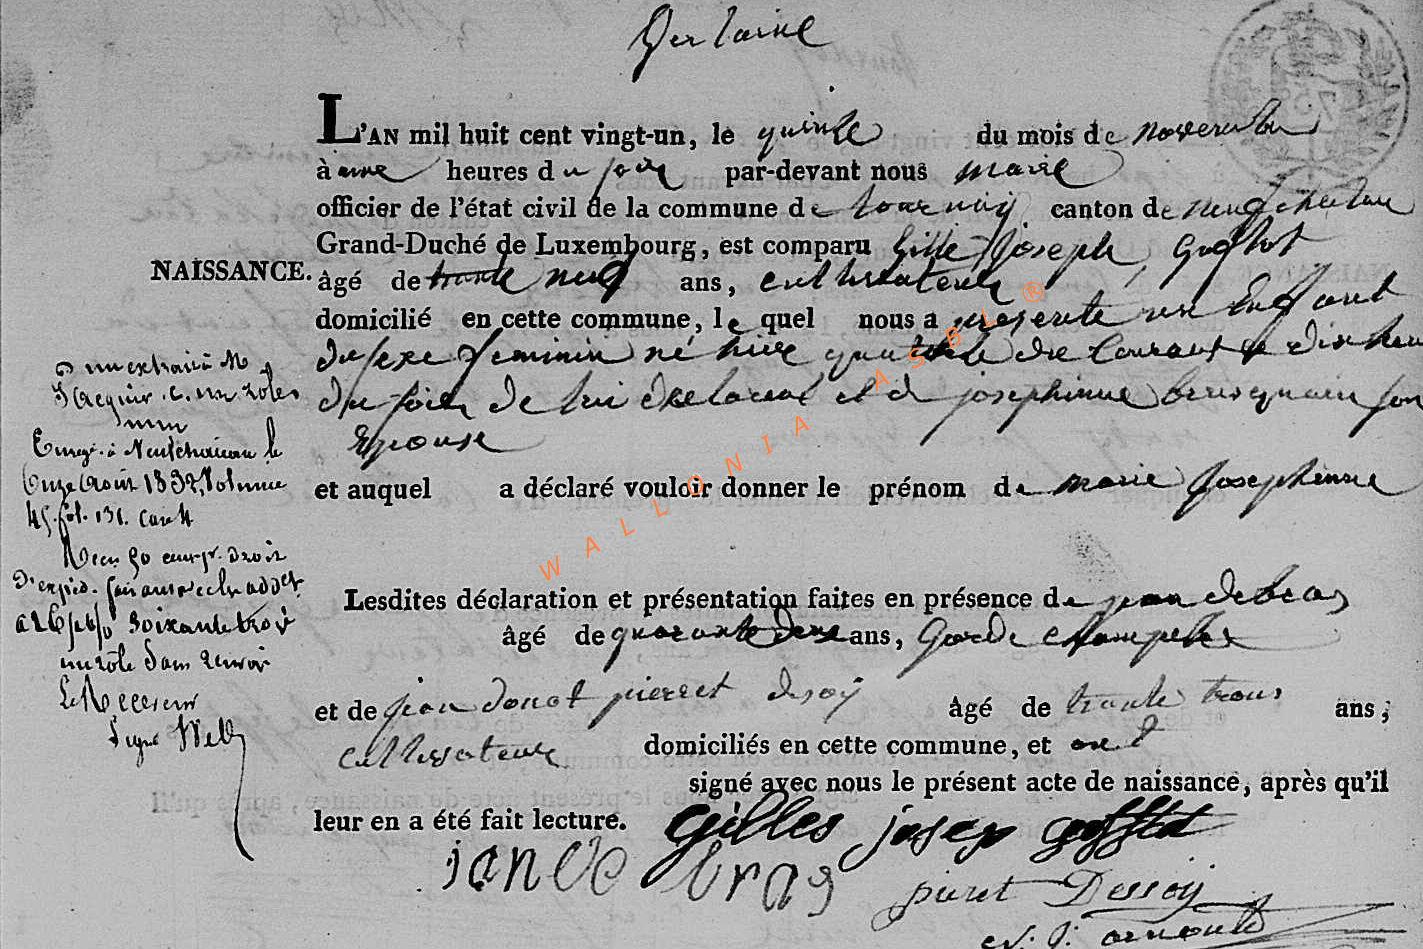 L'AN mil huit cent vingt-un, le quinze du mois de novembre
à onze heures du jour par-devant nous maire
officier de l'état civil de la commune de tournay canton de neufchateau
Grand-Duché de Luxembourg, est comparu Gille Joseph, Goffhot
NAISSANCE.
âgé de trente neuf ans, cultivateur
domicilié en cette commune, le quel nous a presente un Enfant
du sexe feminin né hier quatorze du Courant a dix heu
du soir de lui declarant et de josephinne son
Epouse
et auquel a déclaré vouloir donner le prénom de marie Josephinne
D'un extrait à M
Enreg. à Neufchateau le
Onze Août 1832, Volume
45. fol. 131. Case 4
Reçu
soixante trois
un rôle sans renvoi
Le Receveur
signé
Lesdites déclaration et présentation faites en présence de jean debras
âgé de quarante deux ans, Garde champetre
et de jean donot pierret desoÿ âgé de trente trois ans;
cultivateur domiciliés en cette commune, et ont
signé avec nous le présent acte de naissance, après qu'il
leur en a été fait lecture. Gilles josep gofflot
jan de bras
pieret Dessoÿ
arnould
WALLONIA ASBL ®